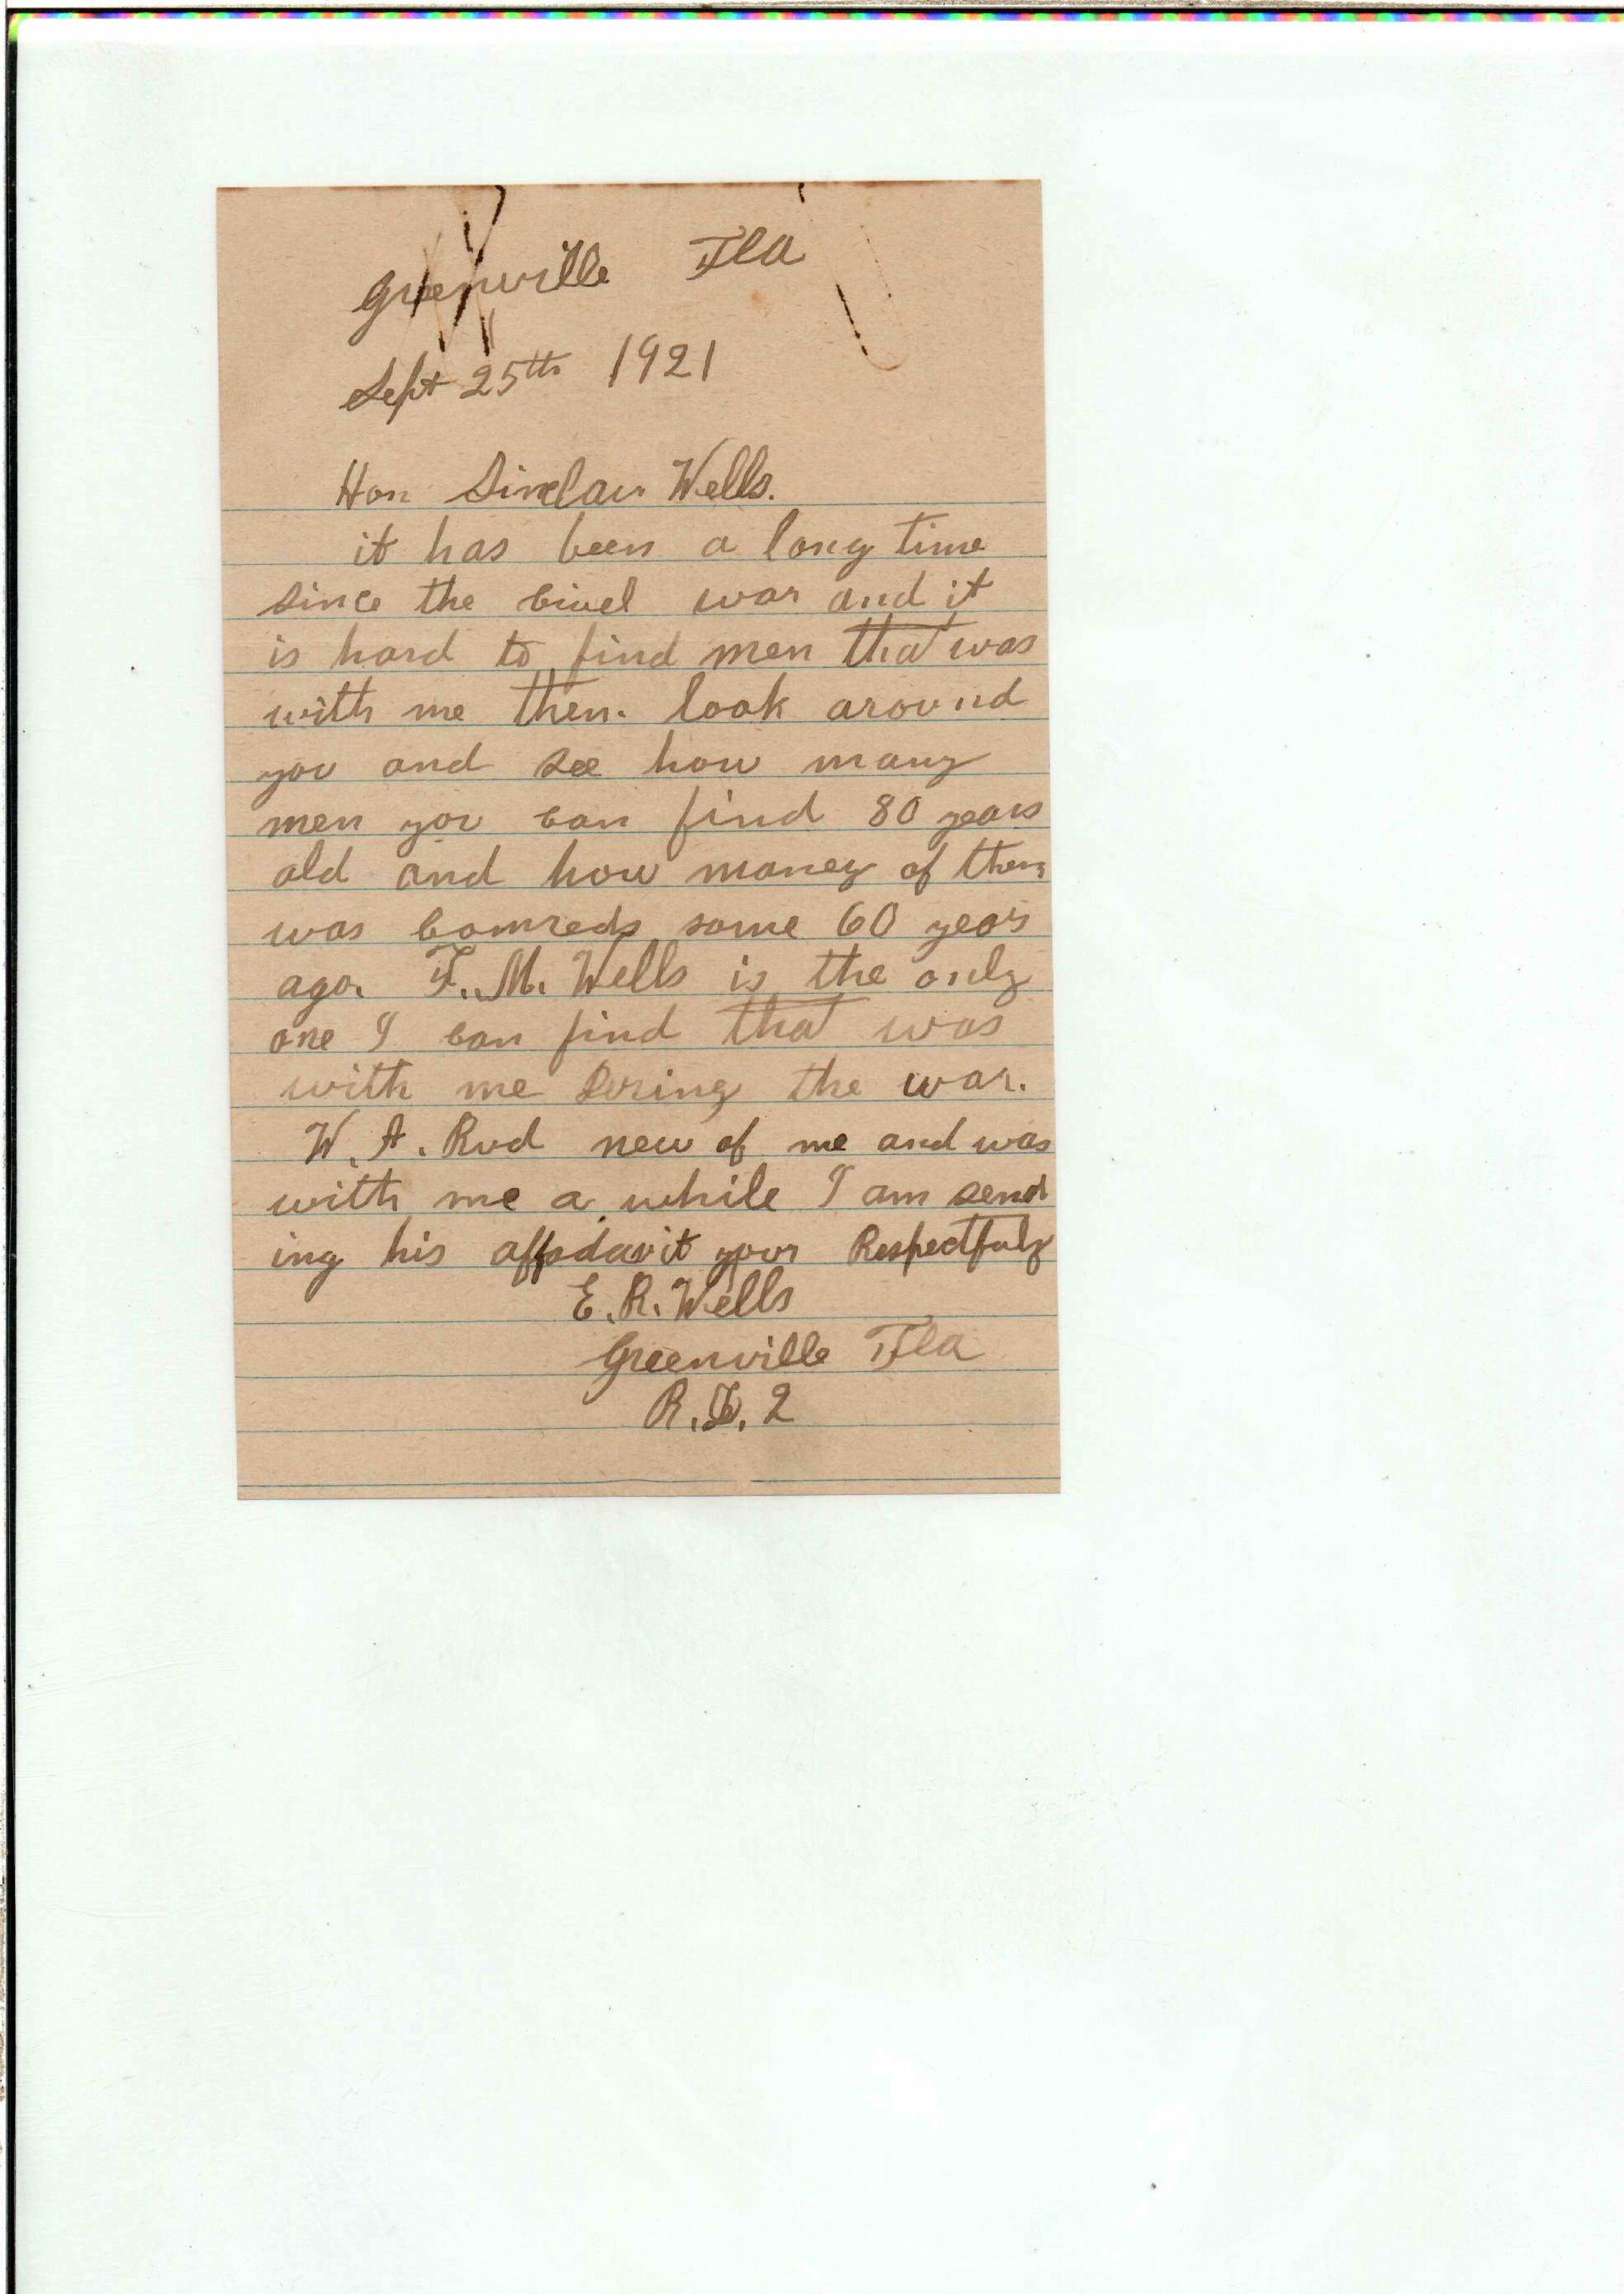 Greenville Fla
Sept 25th 1921
Hon Sinclair Wells.
it has been a long time
since the civel war and it
is hard to find men that was
with me then. look around
you and see how many
men you can find 80 years
old and how maney of them
was comreds some 60 years
ago. F. M. Wells is the only
one I can find that was
with me during the war.
W. A. Rud new of me and was
with me a while I am send
ing his affadavit your Respectfuly
E. R. Wells
Greenville Fla
R. F. 2